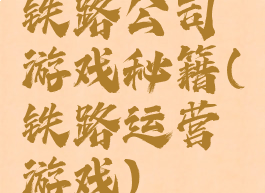 铁路公司
游戏秘籍(
铁路运营
游戏)